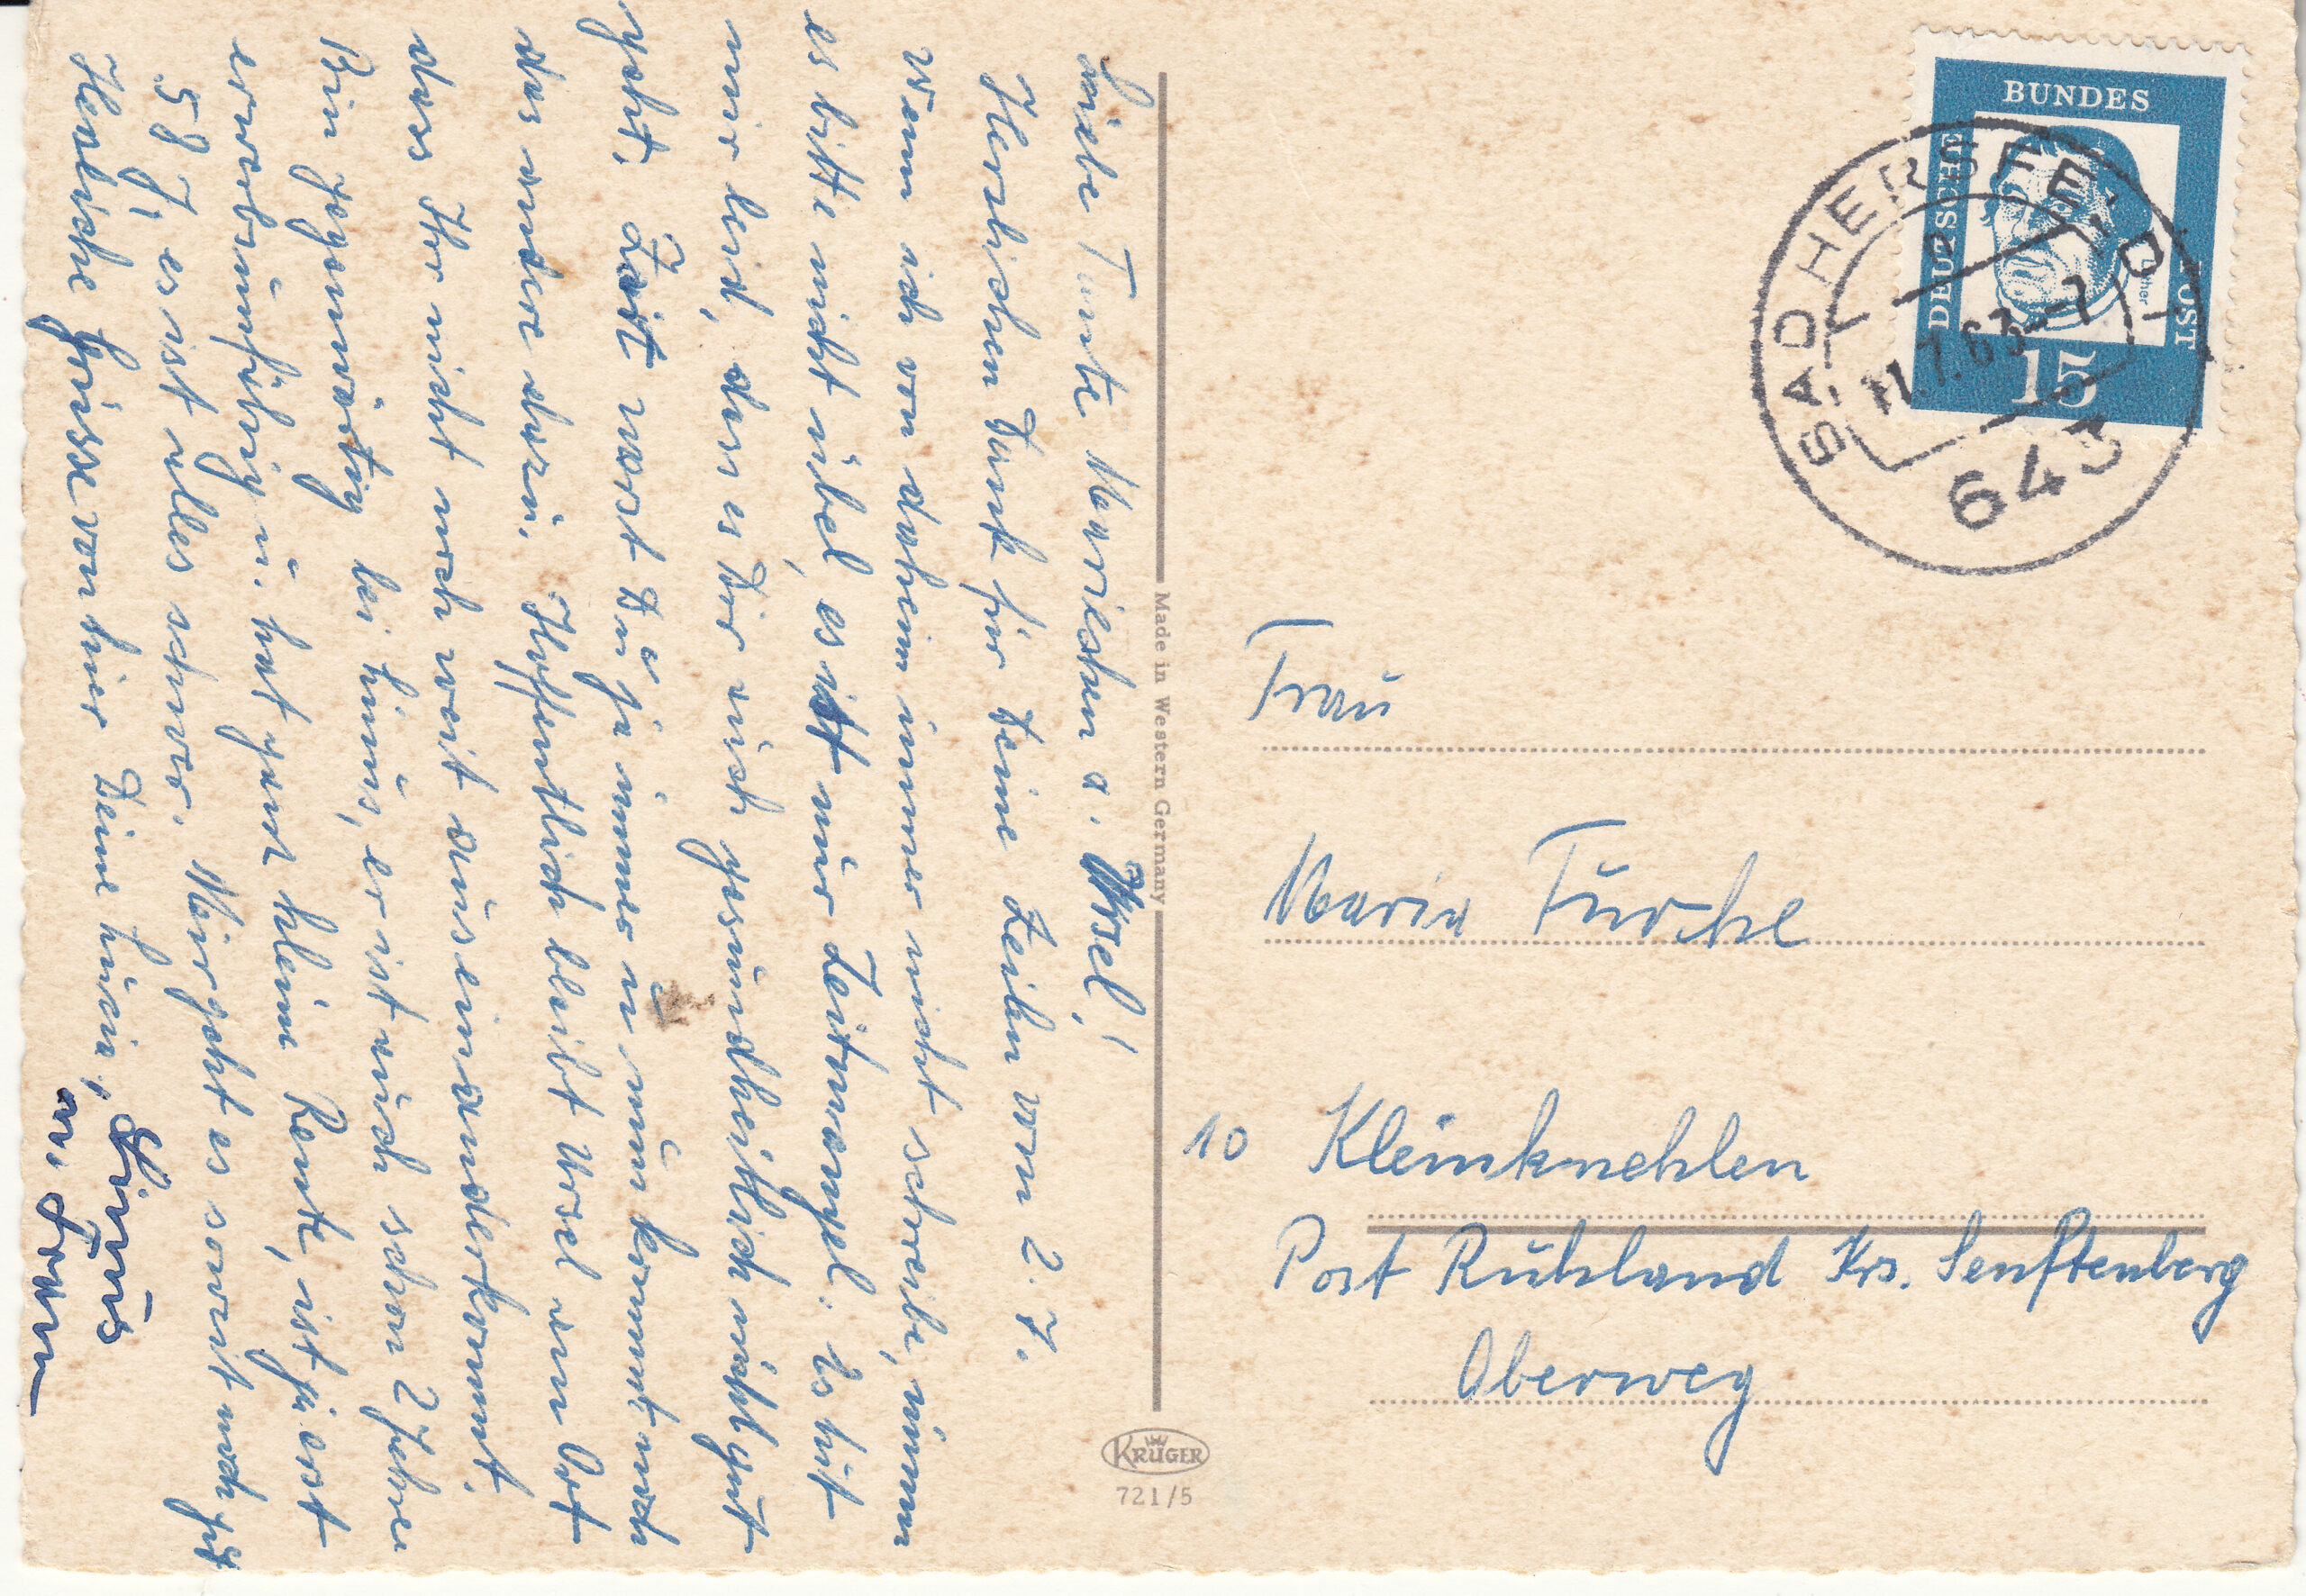 Liebe Tante Mariechen u. Ursel!
Herzlichen Dank für Deine Zeilen vom 2.7.
Wenn ich von daheim immer nicht schreibe, nimm
es bitte nicht übel, es ist nur Zeitmangel. Es tut
mir leid, dass es Dir auch gesundheitlich nicht gut
geht. Zart warst Du ja immer u. nun kommt noch
das andere dazu. Hoffentlich bleibt Ursel am Ort
dass Ihr nicht noch weit auseinanderkommt.
Bin gegenwärtig bei Linus, er ist auch schon 2 Jahre
erwerbsunfähig u. hat ganz kleine Rente, ist ja erst
58 J., es ist alles schwer. Mir geht es soweit noch gut
Herzliche Grüsse von hier Deine Luise,
Linus
u.
Made in Western Germany
KRÜGER
721/5
DEUTSCHE BUNDESPOST
Luther
15
BAD HERSFELD 1
643
11.7.63-17
Frau
Maria Furche
10 Kleinkmehlen
Post Ruhland Krs. Senftenberg
Oberweg